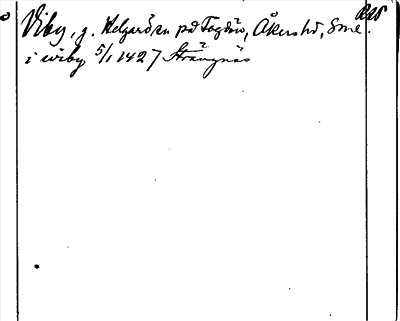 RAp
Viby, g. Helgarö sn på Fogdö, Åkers hd, Sml.
i wiby 5/1 1427 Strängnäs